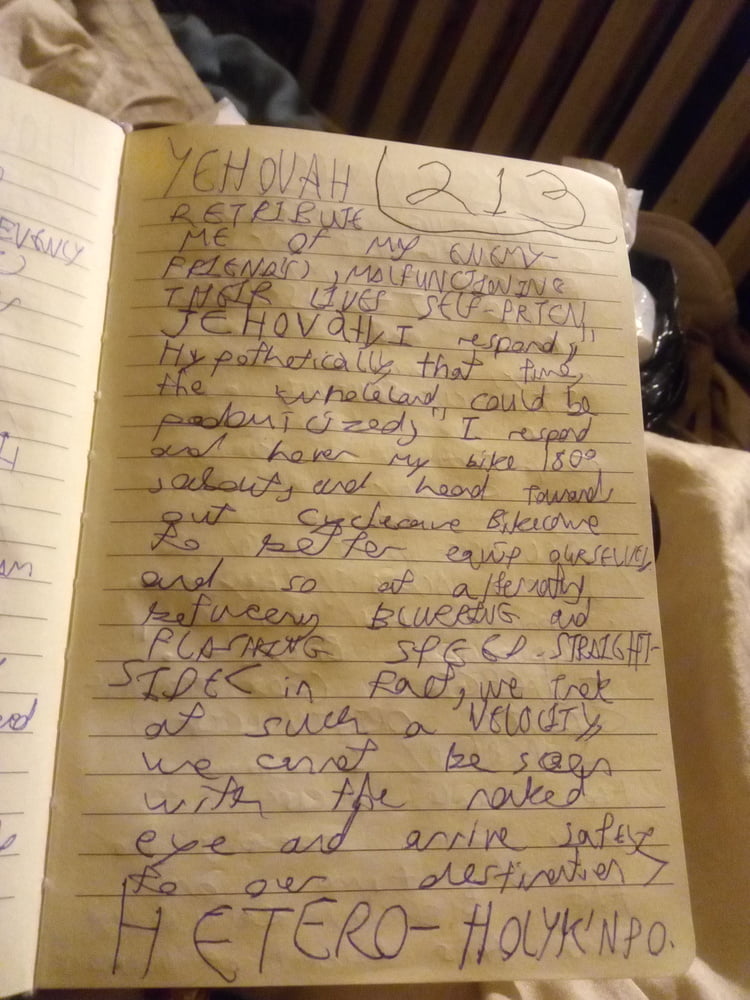 YEHOVAH 213
RETRIBUTE
ME OF MY ENEMY-
FRIEND(S), MALFUNCTIONING
THEIR LIVES SELF-
JEHOVAH, I respond,"
Hypothetically that time,
the could be
I respond
and hover my bike 180°
and head toward
out Cyclecave Bikecove
to better equip OURSELVES
and so at alternating
between BLURRING and
FLASHING SPEED-STRAIGHT-
SIDE< in fact, we trek
at such a VELOCITY,
we cannot be seen
with the naked
eye and arrive safely
to our destination>
HETERO- HOLYK'NPO.
EVENCY